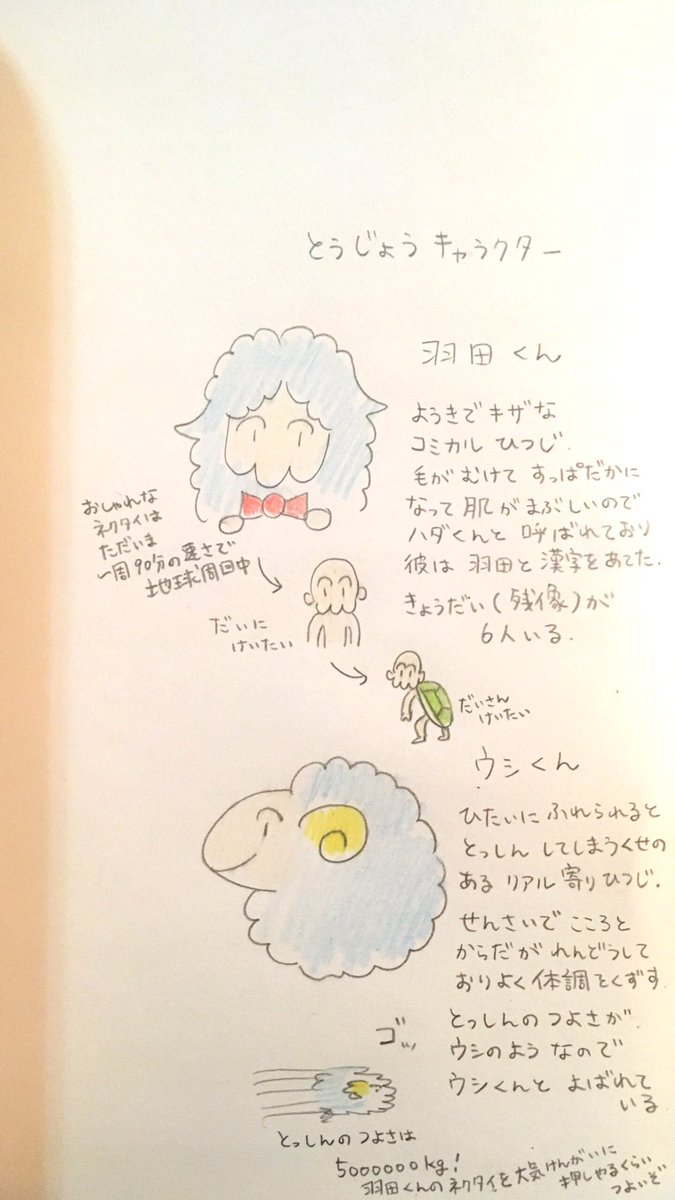 とうじょうキャラクター
羽田くん
ようきでキザな
コミカルひつじ.
毛がむけてすっぱだかに
なって肌がまぶしいので
ハダくんと呼ばれており
彼は羽田と漢字をあてた.
きょうだい(残像)が
6人いる.
おしゃれな
ネクタイは
ただいま
一周90分の速さで
地球周回中
だいに
けいたい
だいさん
けいたい
ウシくん
ひたいにふれられると
とっしんしてしまうくせの
あるリアル寄りひつじ.
せんさいでこころと
からだがれんどうして
おりよく体調をくずす
とっしんのつよさが
ウシのようなので
ウシくんとよばれて
いる
ゴッ
とっしんのつよさは
5000000kg!
羽田くんのネクタイを大気けんがいに
押しやるくらい
つよいぞ